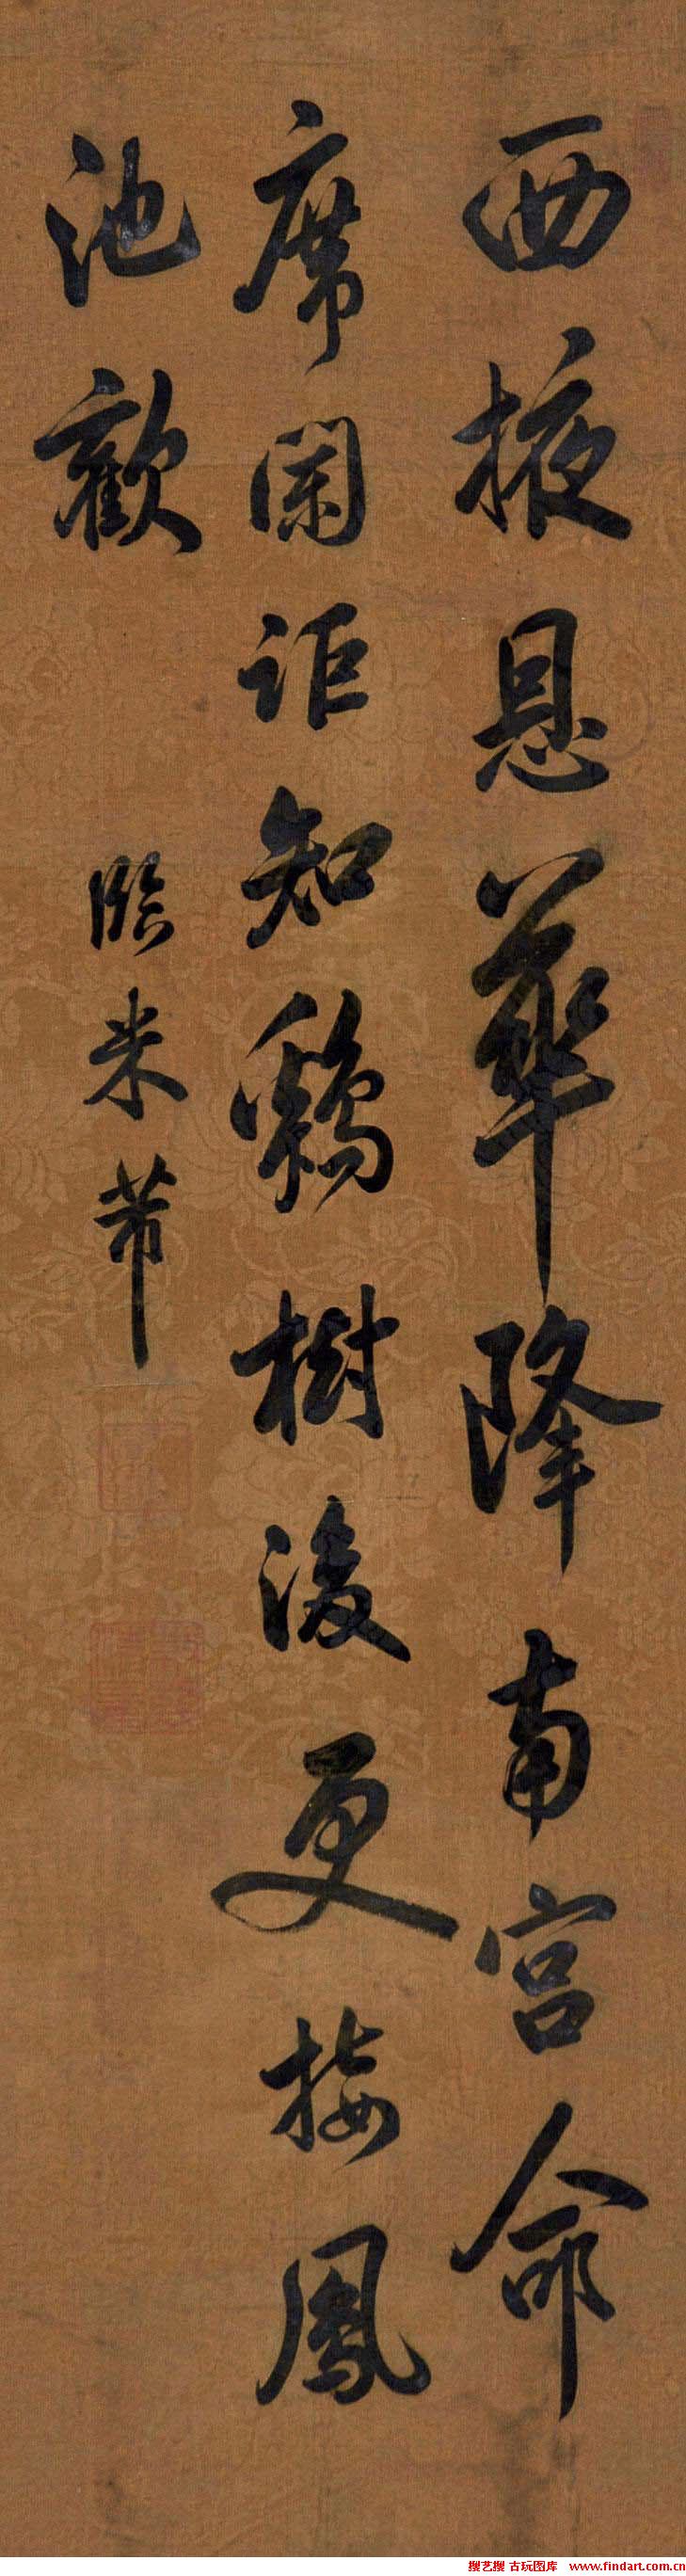 西掖恩華降南宮命
席闌詎知鷄樹後更接鳳
池歡
臨米芾
搜艺搜 古玩图库 www.findart.com.cn